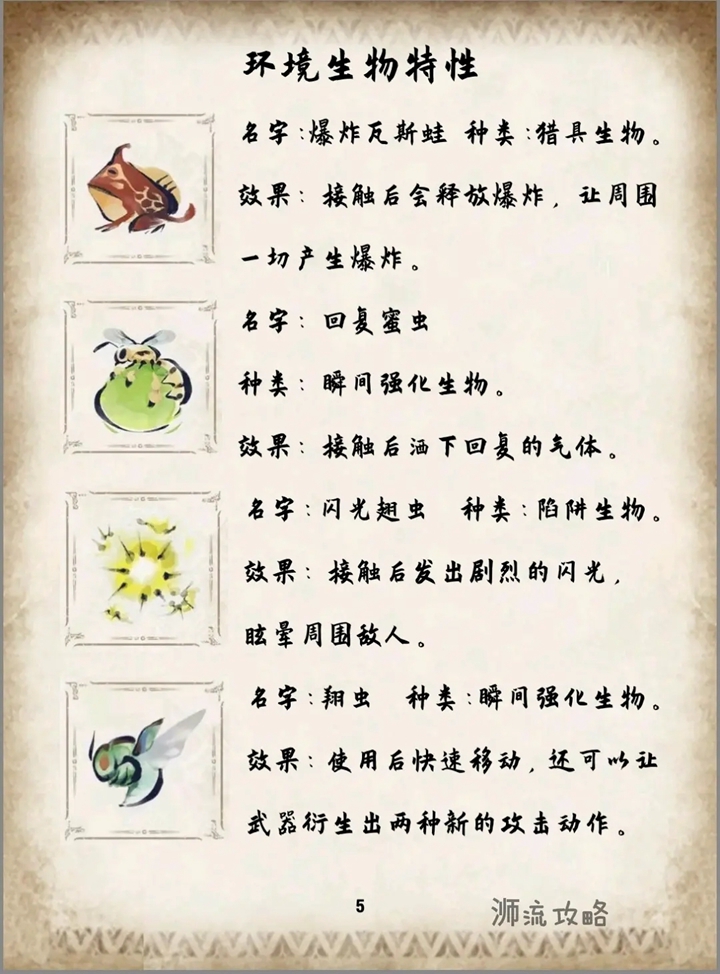 环境生物特性
名字:爆炸瓦斯蛙 种类:猎具生物。
效果:接触后会释放爆炸,让周围
一切产生爆炸。
名字:回复蜜虫
种类:瞬间强化生物。
效果:接触后洒下回复的气体。
名字:闪光翅虫 种类:陷阱生物。
效果:接触后发出剧烈的闪光,
眩晕周围敌人。
名字:翔虫 种类:瞬间强化生物。
效果:使用后快速移动,还可以让
武器衍生出两种新的攻击动作。
5
浉流攻略